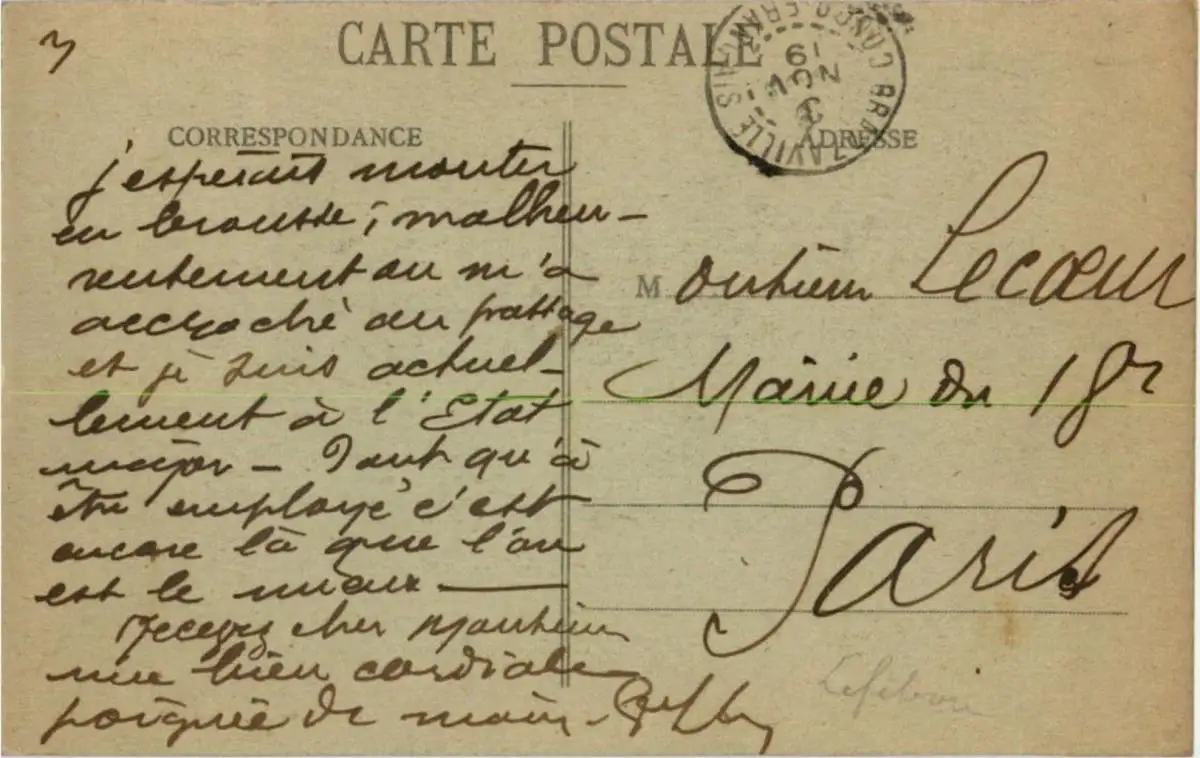 3
CARTE POSTALE
BRAZZAVILLE CONGO FRANÇAIS
19 NOV
CORRESPONDANCE
ADRESSE
j'espérais monter
en brousse ; malheu-
reusement on m'a
accroché au passage
et je suis actuel-
lement à l'Etat
major - Tant qu'à
être employé c'est
encore là que l'on
est le mieux —
Recevez cher Monsieur
une bien cordiale
poignée de main -
Monsieur Lecœur
Mairie du 18e
Paris